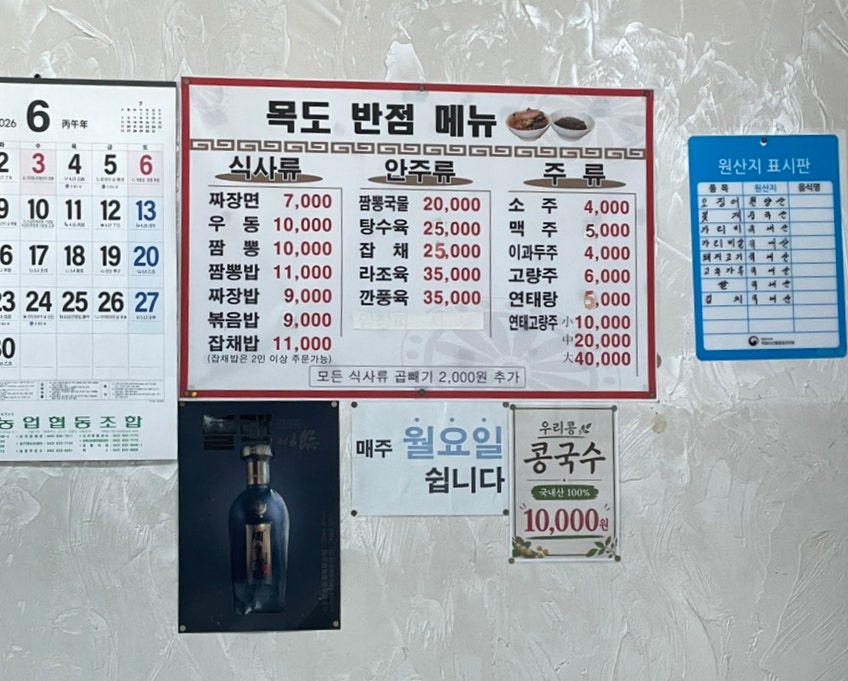 2026 6 丙午年
7
화 수 목 금 토
2 3 4 5 6
9 10 11 12 13
16 17 18 19 20
23 24 25 26 27
30
농업협동조합
목도 반점 메뉴
식사류
짜장면 7,000
우동 10,000
짬뽕 10,000
짬뽕밥 11,000
짜장밥 9,000
볶음밥 9,000
잡채밥 11,000
(잡채밥은 2인 이상 주문가능)
안주류
짬뽕국물 20,000
탕수육 25,000
잡채 25,000
라조육 35,000
깐풍육 35,000
주류
소주 4,000
맥주 5,000
이과두주 4,000
고량주 6,000
연태랑 5,000
연태고량주 小 10,000
中 20,000
大 40,000
모든 식사류 곱빼기 2,000원 추가
원산지 표시판
품목 원산지 음식명
오징어 원양산
꽃게 중국산
가리비 국내산
돼지고기 국내산
고추가루 국내산
쌀 국내산
김치 국내산
매주 월요일
쉽니다
우리콩
콩국수
국내산 100%
10,000원